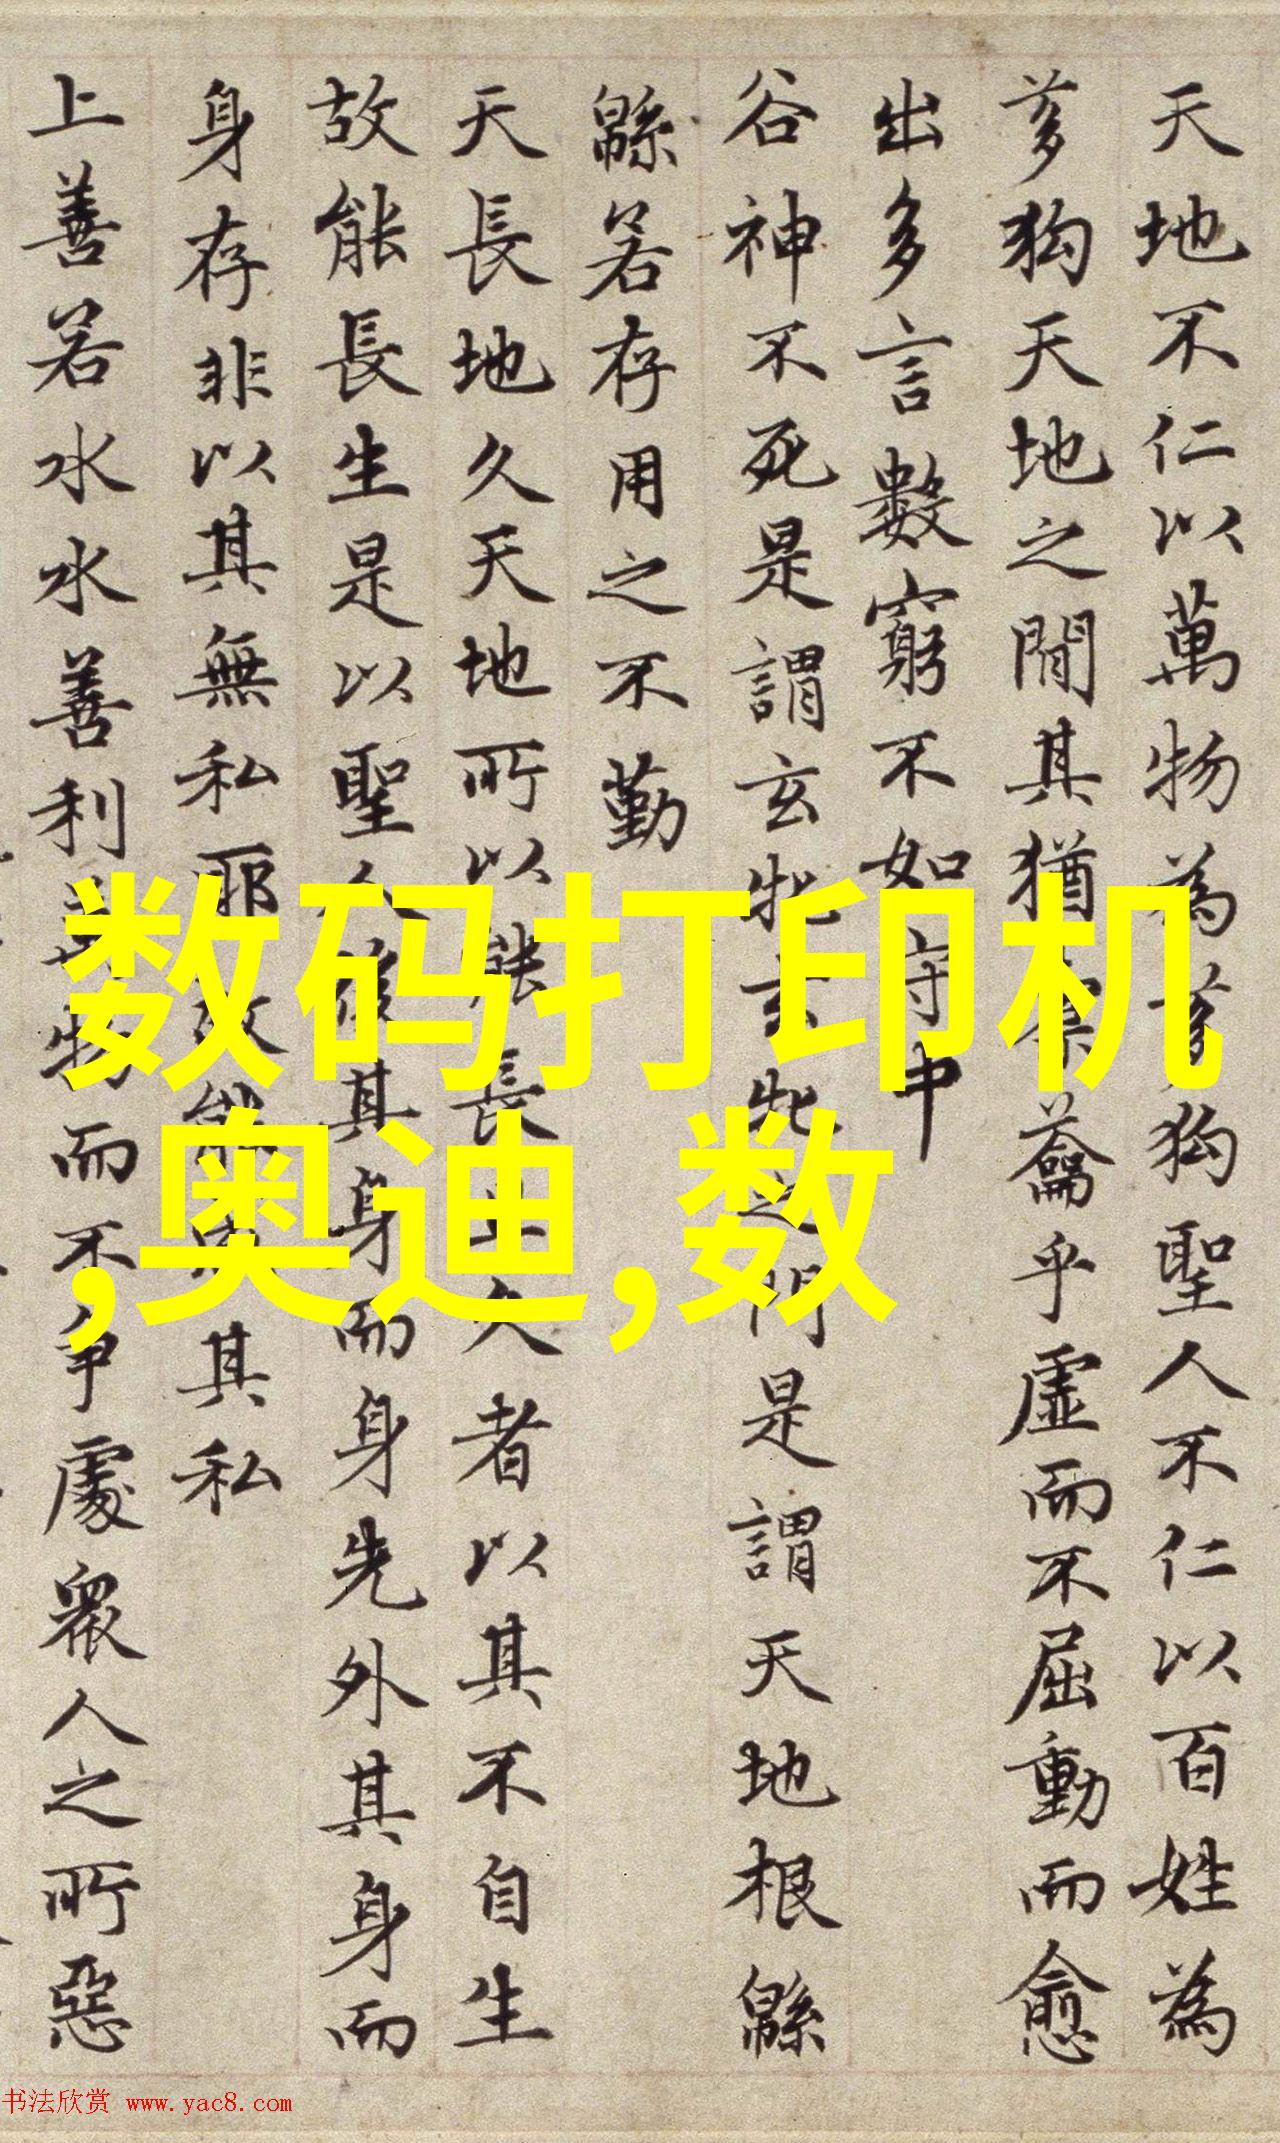 天地不仁以萬物為芻狗聖人不仁以百姓為
芻狗天地之間其猶橐籥乎虛而不屈動而愈
出多言數窮不如守中
谷神不死是謂玄牝玄牝之門是謂天地根緜
緜若存用之不勤
天長地久天地所以能長且久者以其不自生
故能長生是以聖人後其身而身先外其身而
身存非以其無私耶故能成其私
上善若水水善利萬物而不爭處衆人之所惡
数码打印机
,奥迪,数
书法欣赏 www.yac8.com